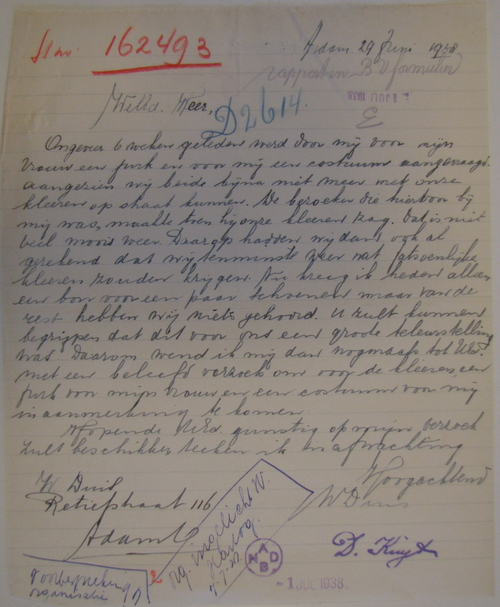 St. nr. 162493
Adam. 29 Juni 1938.
rapporten B V formulier
Weled. Heer,
D2614.
E
Ongeveer 6 weken geleden werd door mij voor mijn
vrouw een jurk en voor mij een costuum aangevraagd
aangezien wij beide bijna niet meer met onze
kleeren op straat kunnen. De bezoeker die hierover bij
mij was, maakte toen hij onze kleeren zag. Dat is niet
veel moois weer. Daarop hadden wij dan ook al
gerekend dat wij tenminste zeker wat fatsoenlijke
kleeren zouden krijgen. Nu kreeg ik heden alleen
een bon voor een paar schoenen maar van de
rest hebben wij niets gehoord. U zult kunnen
begrijpen dat dit voor ons een groote teleurstelling
was. Daarom wend ik mij dan nogmaals tot UEd.
met een beleefd verzoek om voor de kleeren, een
jurk voor mijn vrouw en een costuum voor mij
in aanmerking te komen.
Hopende UEd. gunstig op mijn verzoek
zult beschikken teeken ik in afwachting
Hoogachtend
W Duis
W Duis
Retiefstraat 116
Adam O.
og. ingelicht W.
D. Kuyt
A
N B D
- 1 JUL 1938.
Voorbespreking
organisatie
2